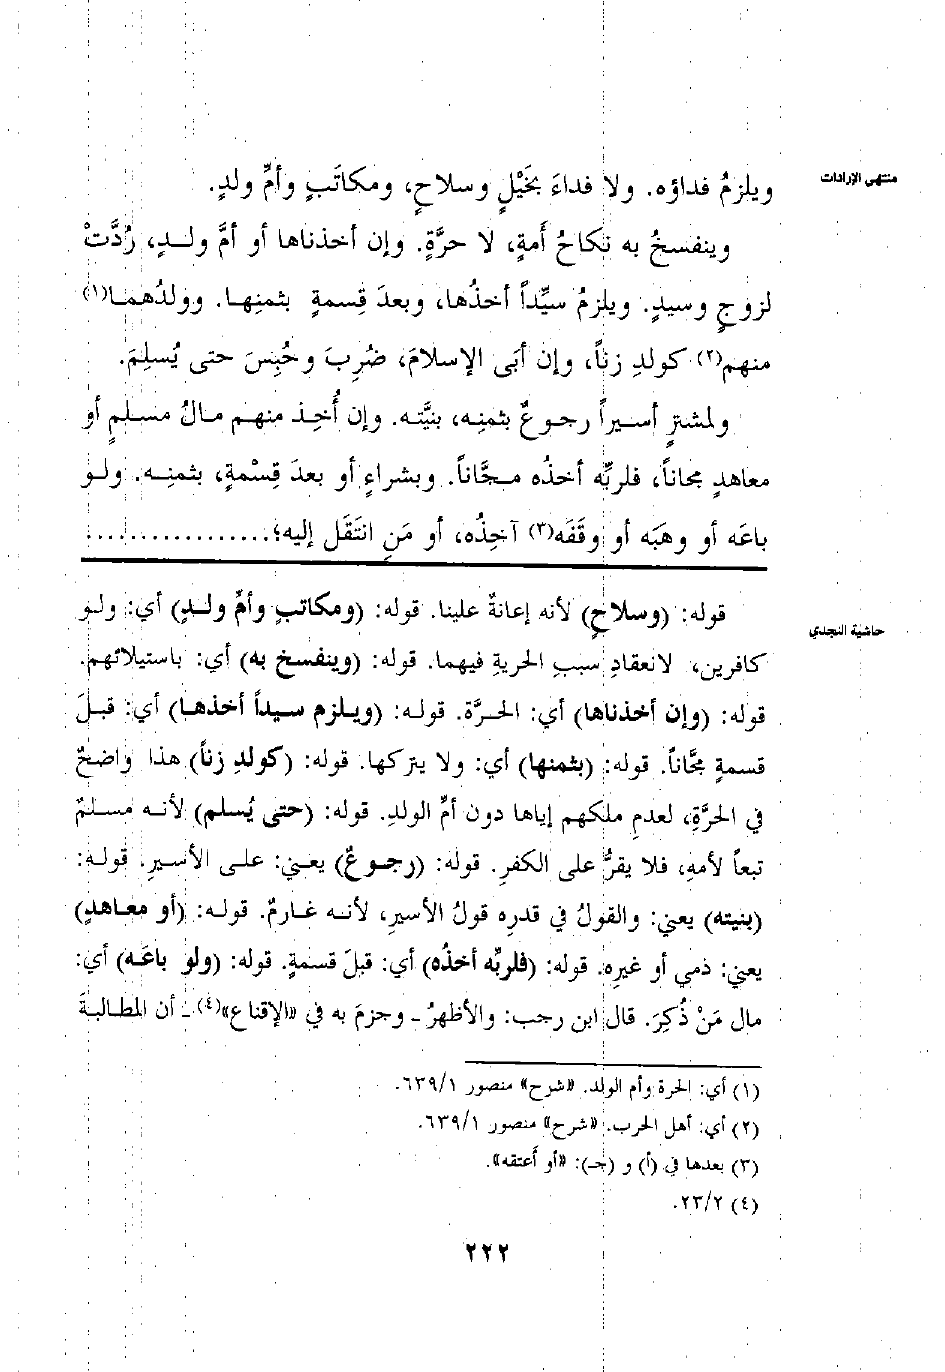 منتهى الإرادات
ويلزمُ فداؤه. ولا فداءَ بخَيْلٍ وسلاحٍ، ومكاتَبٍ وأمِّ ولدٍ.
وينفسخُ به نكاحُ أَمةٍ، لا حرَّةٍ. وإن أخذناها أو أمَّ ولدٍ، رُدَّتْ
لزوجٍ وسيدٍ. ويلزمُ سيِّداً أخذُها، وبعدَ قِسمةٍ بثمنِها. وولدُهما(١)
منهم(٢) كولدِ زناً، وإن أبَى الإسلامَ، ضُرِبَ وحُبِسَ حتى يُسلِمَ.
ولمشترٍ أسيراً رجوعٌ بثمنِه، بنيَّته. وإن أُخِذ منهم مالُ مسلمٍ أو
معاهدٍ مجاناً، فلربِّه أخذُه مجَّاناً. وبشراءٍ أو بعدَ قِسْمةٍ، بثمنِه. ولو
باعَه أو وهبَه أو وقَفَه(٣) آخِذُه، أو مَنِ انتَقَل إليه؛................
حاشية النجدي
قوله: (وسلاحٍ) لأنه إعانةٌ علينا. قوله: (ومكاتبٍ وأمِّ ولدٍ) أي: ولو
كافرين، لانعقادِ سببِ الحريةِ فيهما. قوله: (وينفسخ به) أي: باستيلائهم.
قوله: (وإن أخذناها) أي: الحرَّة. قوله: (ويلزم سيداً أخذها) أي: قبلَ
قسمةٍ مجَّاناً. قوله: (بثمنها) أي: ولا يتركها. قوله: (كولدِ زناً) هذا واضحٌ
في الحرَّةِ، لعدمِ ملكهم إياها دون أمِّ الولدِ. قوله: (حتى يُسلم) لأنه مسلمٌ
تبعاً لأمهِ، فلا يقرُّ على الكفرِ. قوله: (رجوعٌ) يعني: على الأسيرِ. قوله:
(بنيته) يعني: والقولُ في قدرِه قولُ الأسيرِ، لأنه غارمٌ. قوله: (أو معاهدٍ)
يعني: ذمي أو غيره. قوله: (فلربِّه أخذُه) أي: قبلَ قسمةٍ. قوله: (ولو باعَه) أي:
مال مَنْ ذُكِرَ. قال ابن رجب: والأظهرُ ـ وجزمَ به في «الإقناع»(٤) ـ أن المطالبةَ
(١) أي: الحرة وأم الولد. «شرح» منصور ٦٣٩/١.
(٢) أي: أهل الحرب. «شرح» منصور ٦٣٩/١.
(٣) بعدها في (أ) و (جـ): «أو أَعتقه».
(٤) ٢٣/٢.
٢٢٢